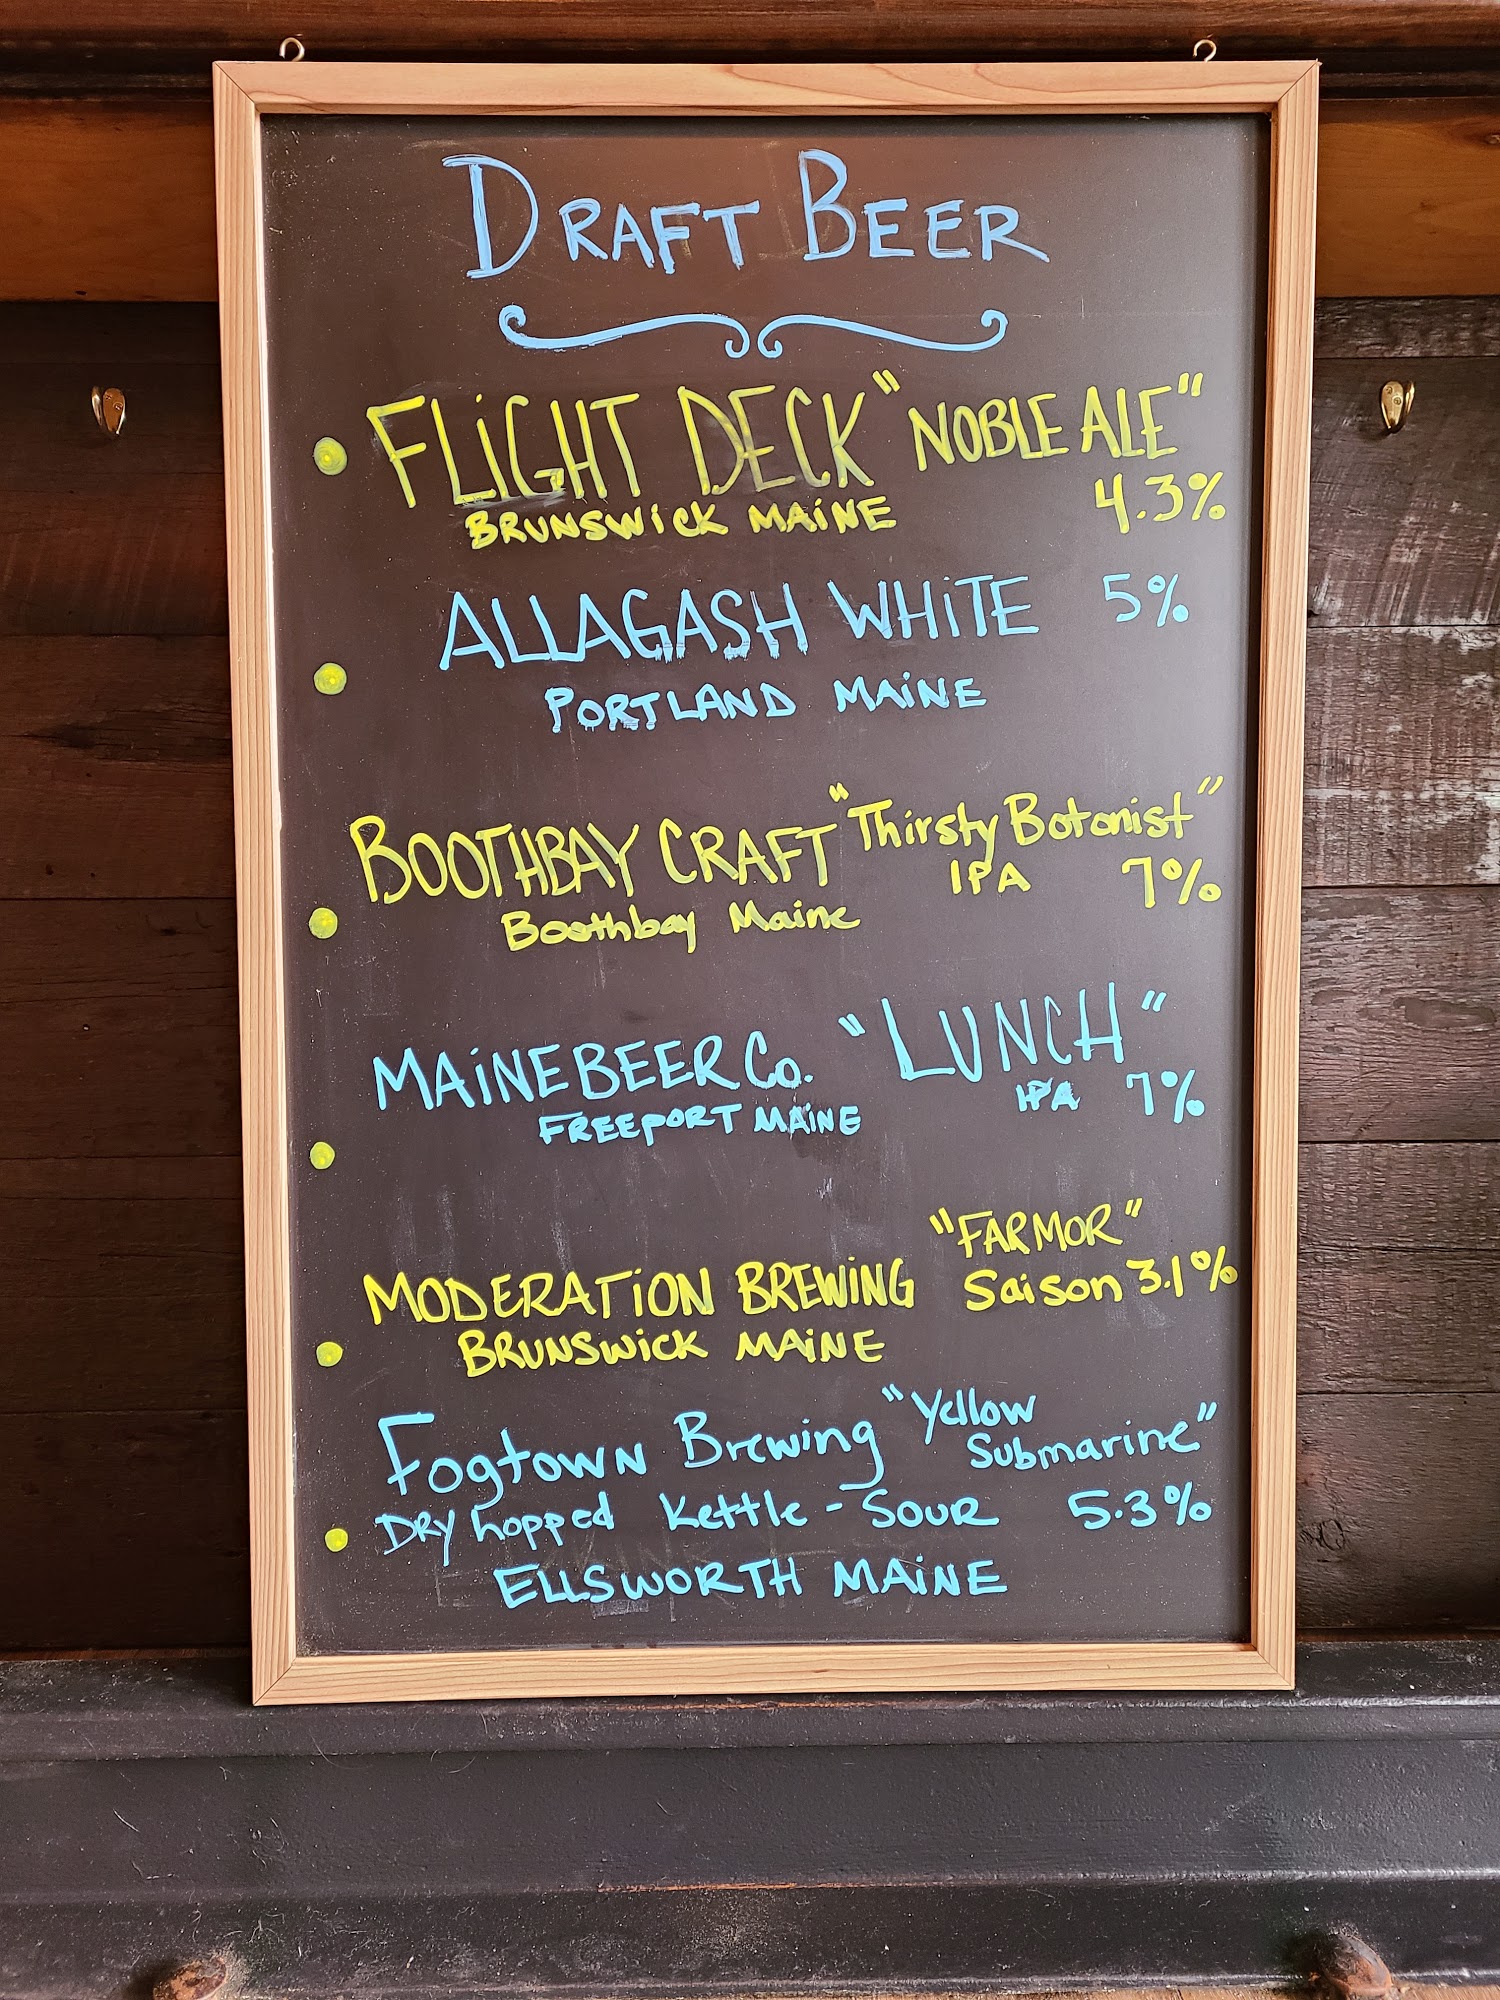 DRAFT BEER
FLiGHT DECK "NOBLE ALE"
BRUNSWiCK MAiNE 4.3%
ALLAGASH WHiTE 5%
PORTLAND MAiNE
BOOTHBAY CRAFT "Thirsty Botanist"
IPA 7%
Boothbay Maine
MAiNE BEER Co. "LUNCH"
FREEPORT MAiNE IPA 7%
"FARMOR"
MODERATiON BREWING Saison 3.1%
BRUNSWiCK MAiNE
Fogtown Brewing "Yellow
Submarine"
DRY hopped Kettle-SOUR 5.3%
ELLSWORTH MAiNE